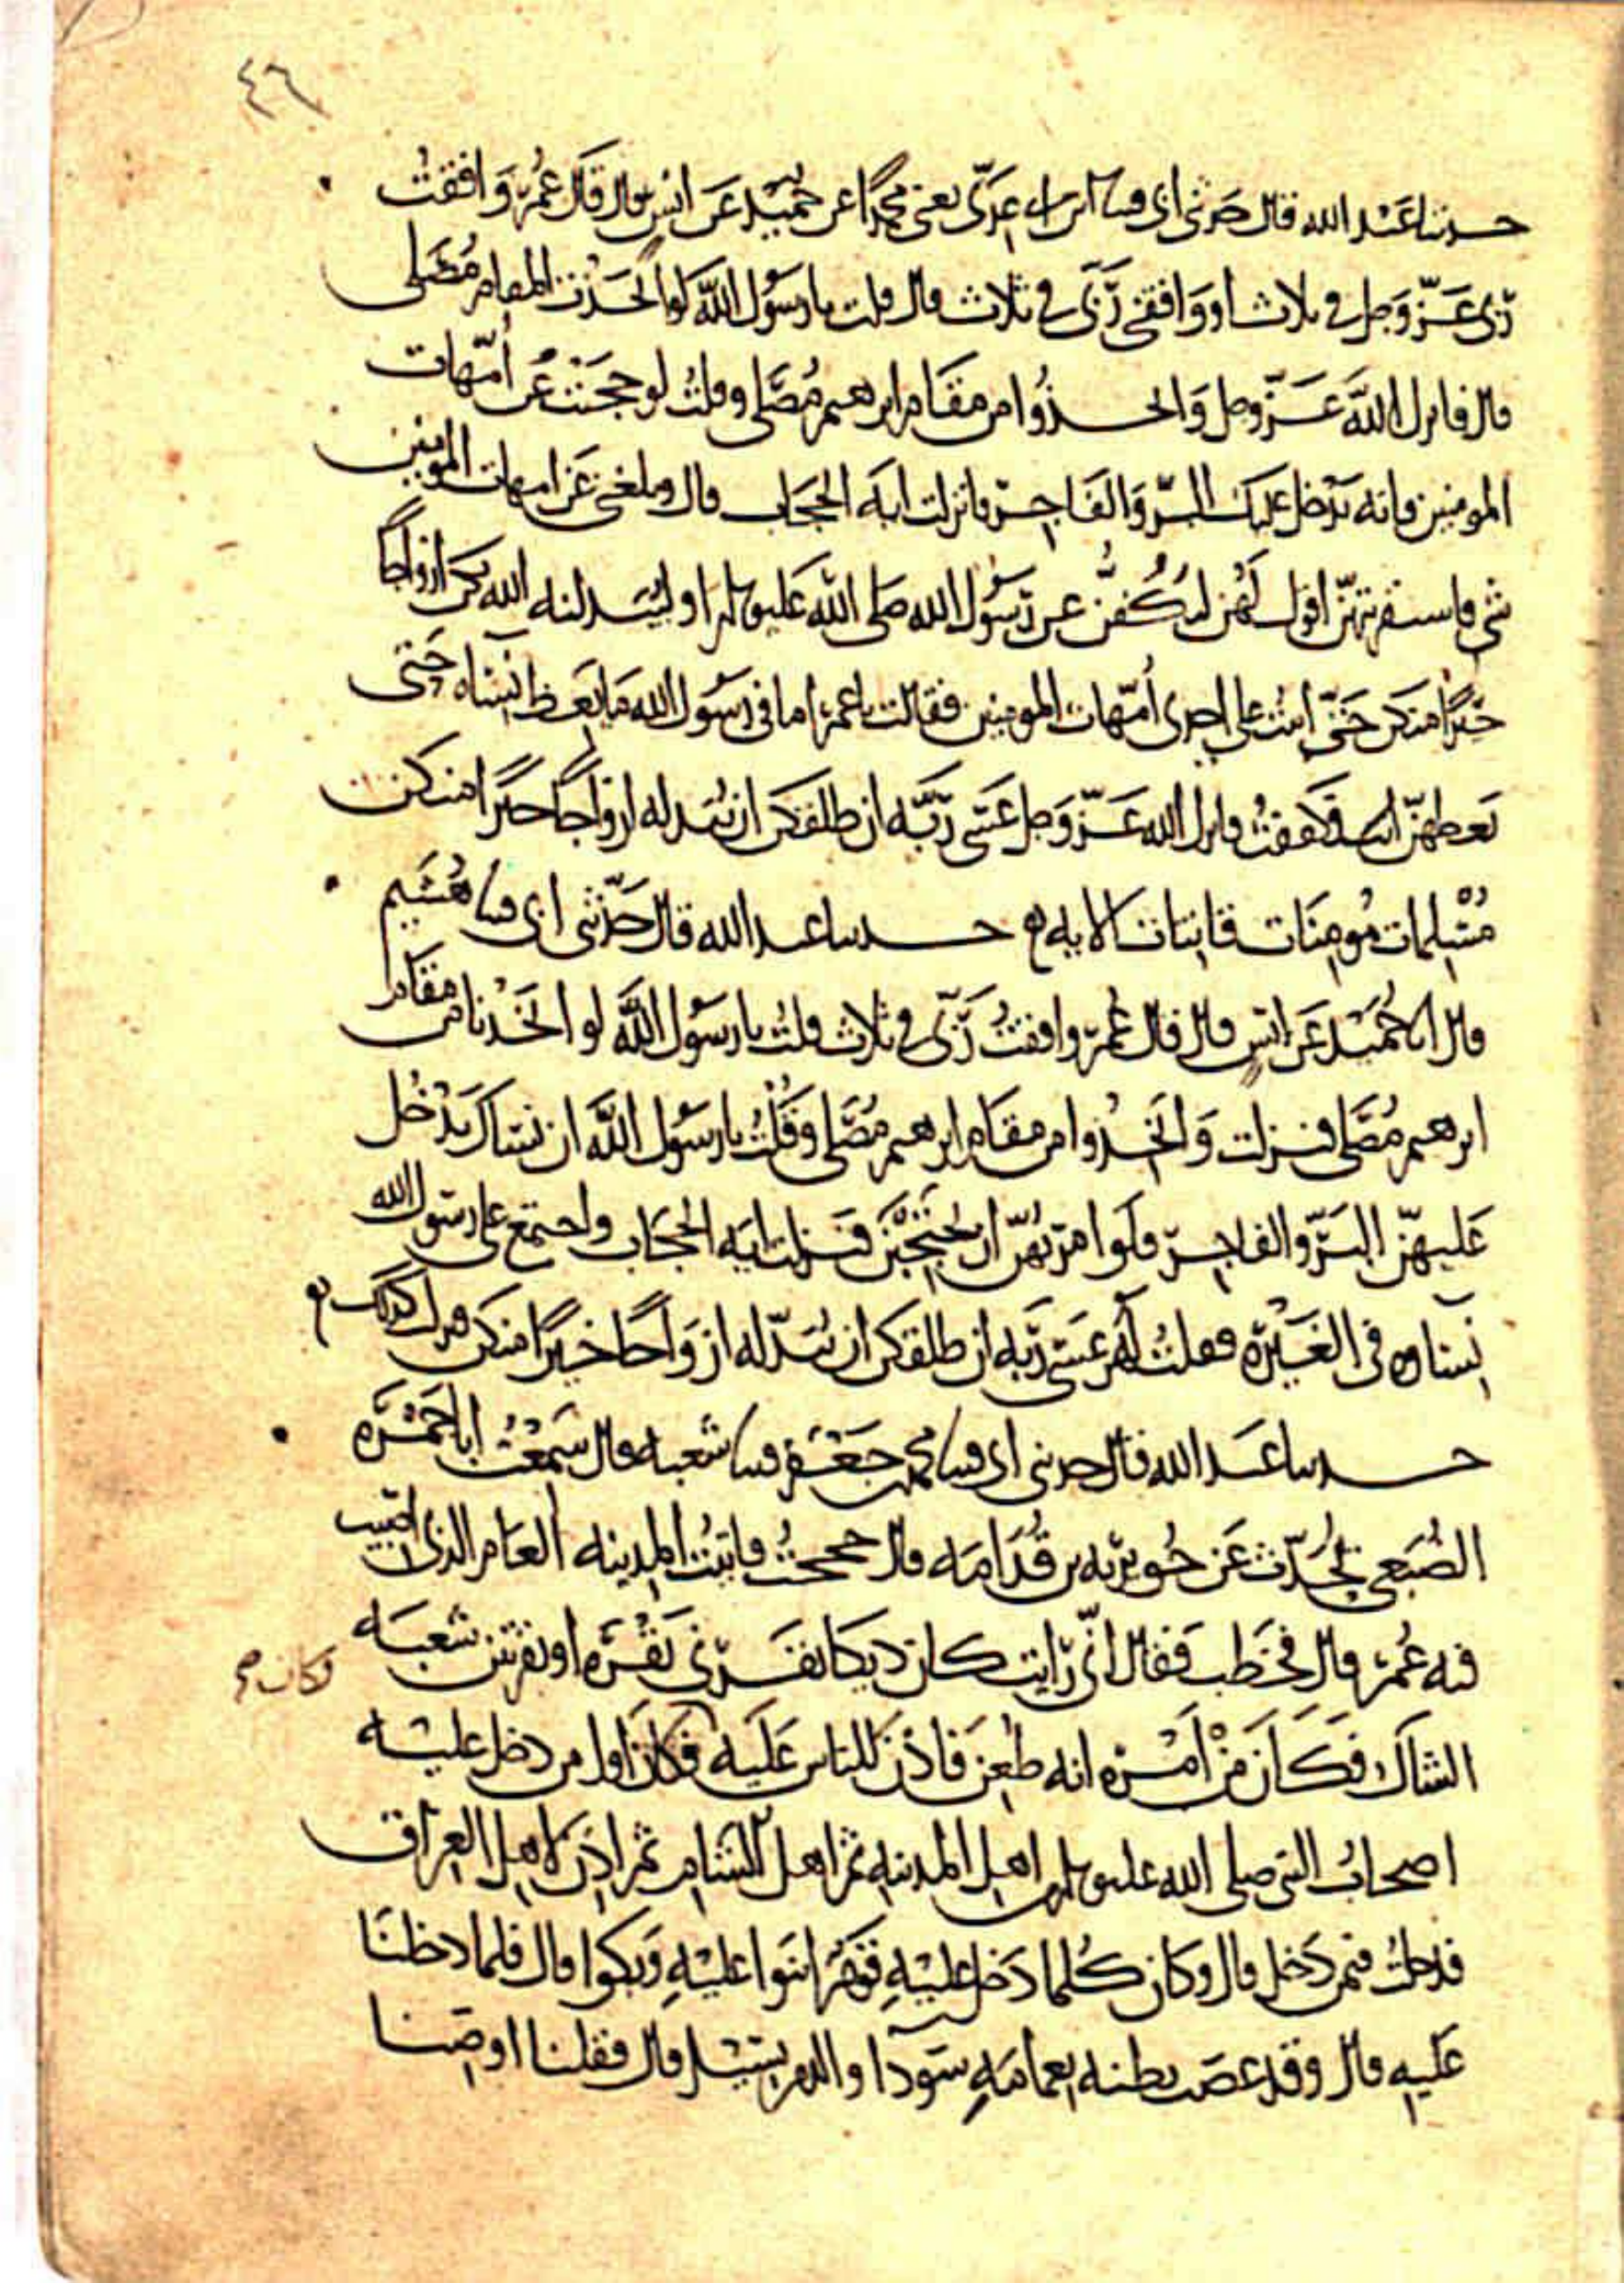 ٤٦
حدثنا عبد الله قال حدثني ابي قثنا ابن ابي عدي يعني محمدا عن حميد عن انس قال قال عمر وافقت
ربي عز وجل في ثلاث او وافقني ربي في ثلاث قال قلت يا رسول الله لو اتخذت المقام مصلى
قال فانزل الله عز وجل واتخذوا من مقام ابرهيم مصلى وقلت لو حجبت عن امهات
المومنين فانه يدخل عليك البر والفاجر فانزلت اية الحجاب قال وبلغني عن امهات المومنين
شي فاستقريتهن اقول لهن لتكفن عن رسول الله صلى الله عليه وسلم او ليبدلنه الله بكن ازواجا
خيرا منكن حتى اتيت على احدى امهات المومنين فقالت يا عمر اما في رسول الله ما يعظ نساه حتى
تعظهن انت فكففت فانزل الله عز وجل عسى ربه ان طلقكن ان يبدله ازواجا خيرا منكن
مسلمات مومنات قانتات الايه حدثنا عبد الله قال حدثني ابي قثنا هشيم
قال انا حميد عن انس قال قال عمر وافقت ربي في ثلاث قلت يا رسول الله لو اتخذنا من مقام
ابرهيم مصلى فنزلت واتخذوا من مقام ابرهيم مصلى وقلت يا رسول الله ان نساك يدخل
عليهن البر والفاجر فلو امرتهن ان يحتجبن فنزلت اية الحجاب واجتمع على رسول الله
نساوه في الغيرة فقلت لهن عسى ربه ان طلقكن ان يبدله ازواجا خيرا منكن فنزلت كذلك
حدثنا عبد الله قال حدثني ابي قثنا محمد بن جعفر قثنا شعبه قال سمعت ابا جمره
الضبعي يحدث عن جويريه بن قدامه قال حججت فاتيت المدينه العام الذي اصيب
فيه عمر قال فخطب فقال اني رايت كان ديكا نقرني نقره او نقرتين شعبه
فكان صح
الشاك فكان من امره انه طعن فاذن للناس عليه فكان اول من دخل عليه
اصحاب النبي صلى الله عليه وسلم ثم اهل المدينه ثم اهل الشام ثم اذن لاهل العراق
فدخلت فيمن دخل قال وكان كلما دخل عليه قوم اثنوا عليه وبكوا قال فلما دخلنا
عليه قال وقد عصب بطنه بعمامه سودا والدم يسيل قال فقلنا اوصنا